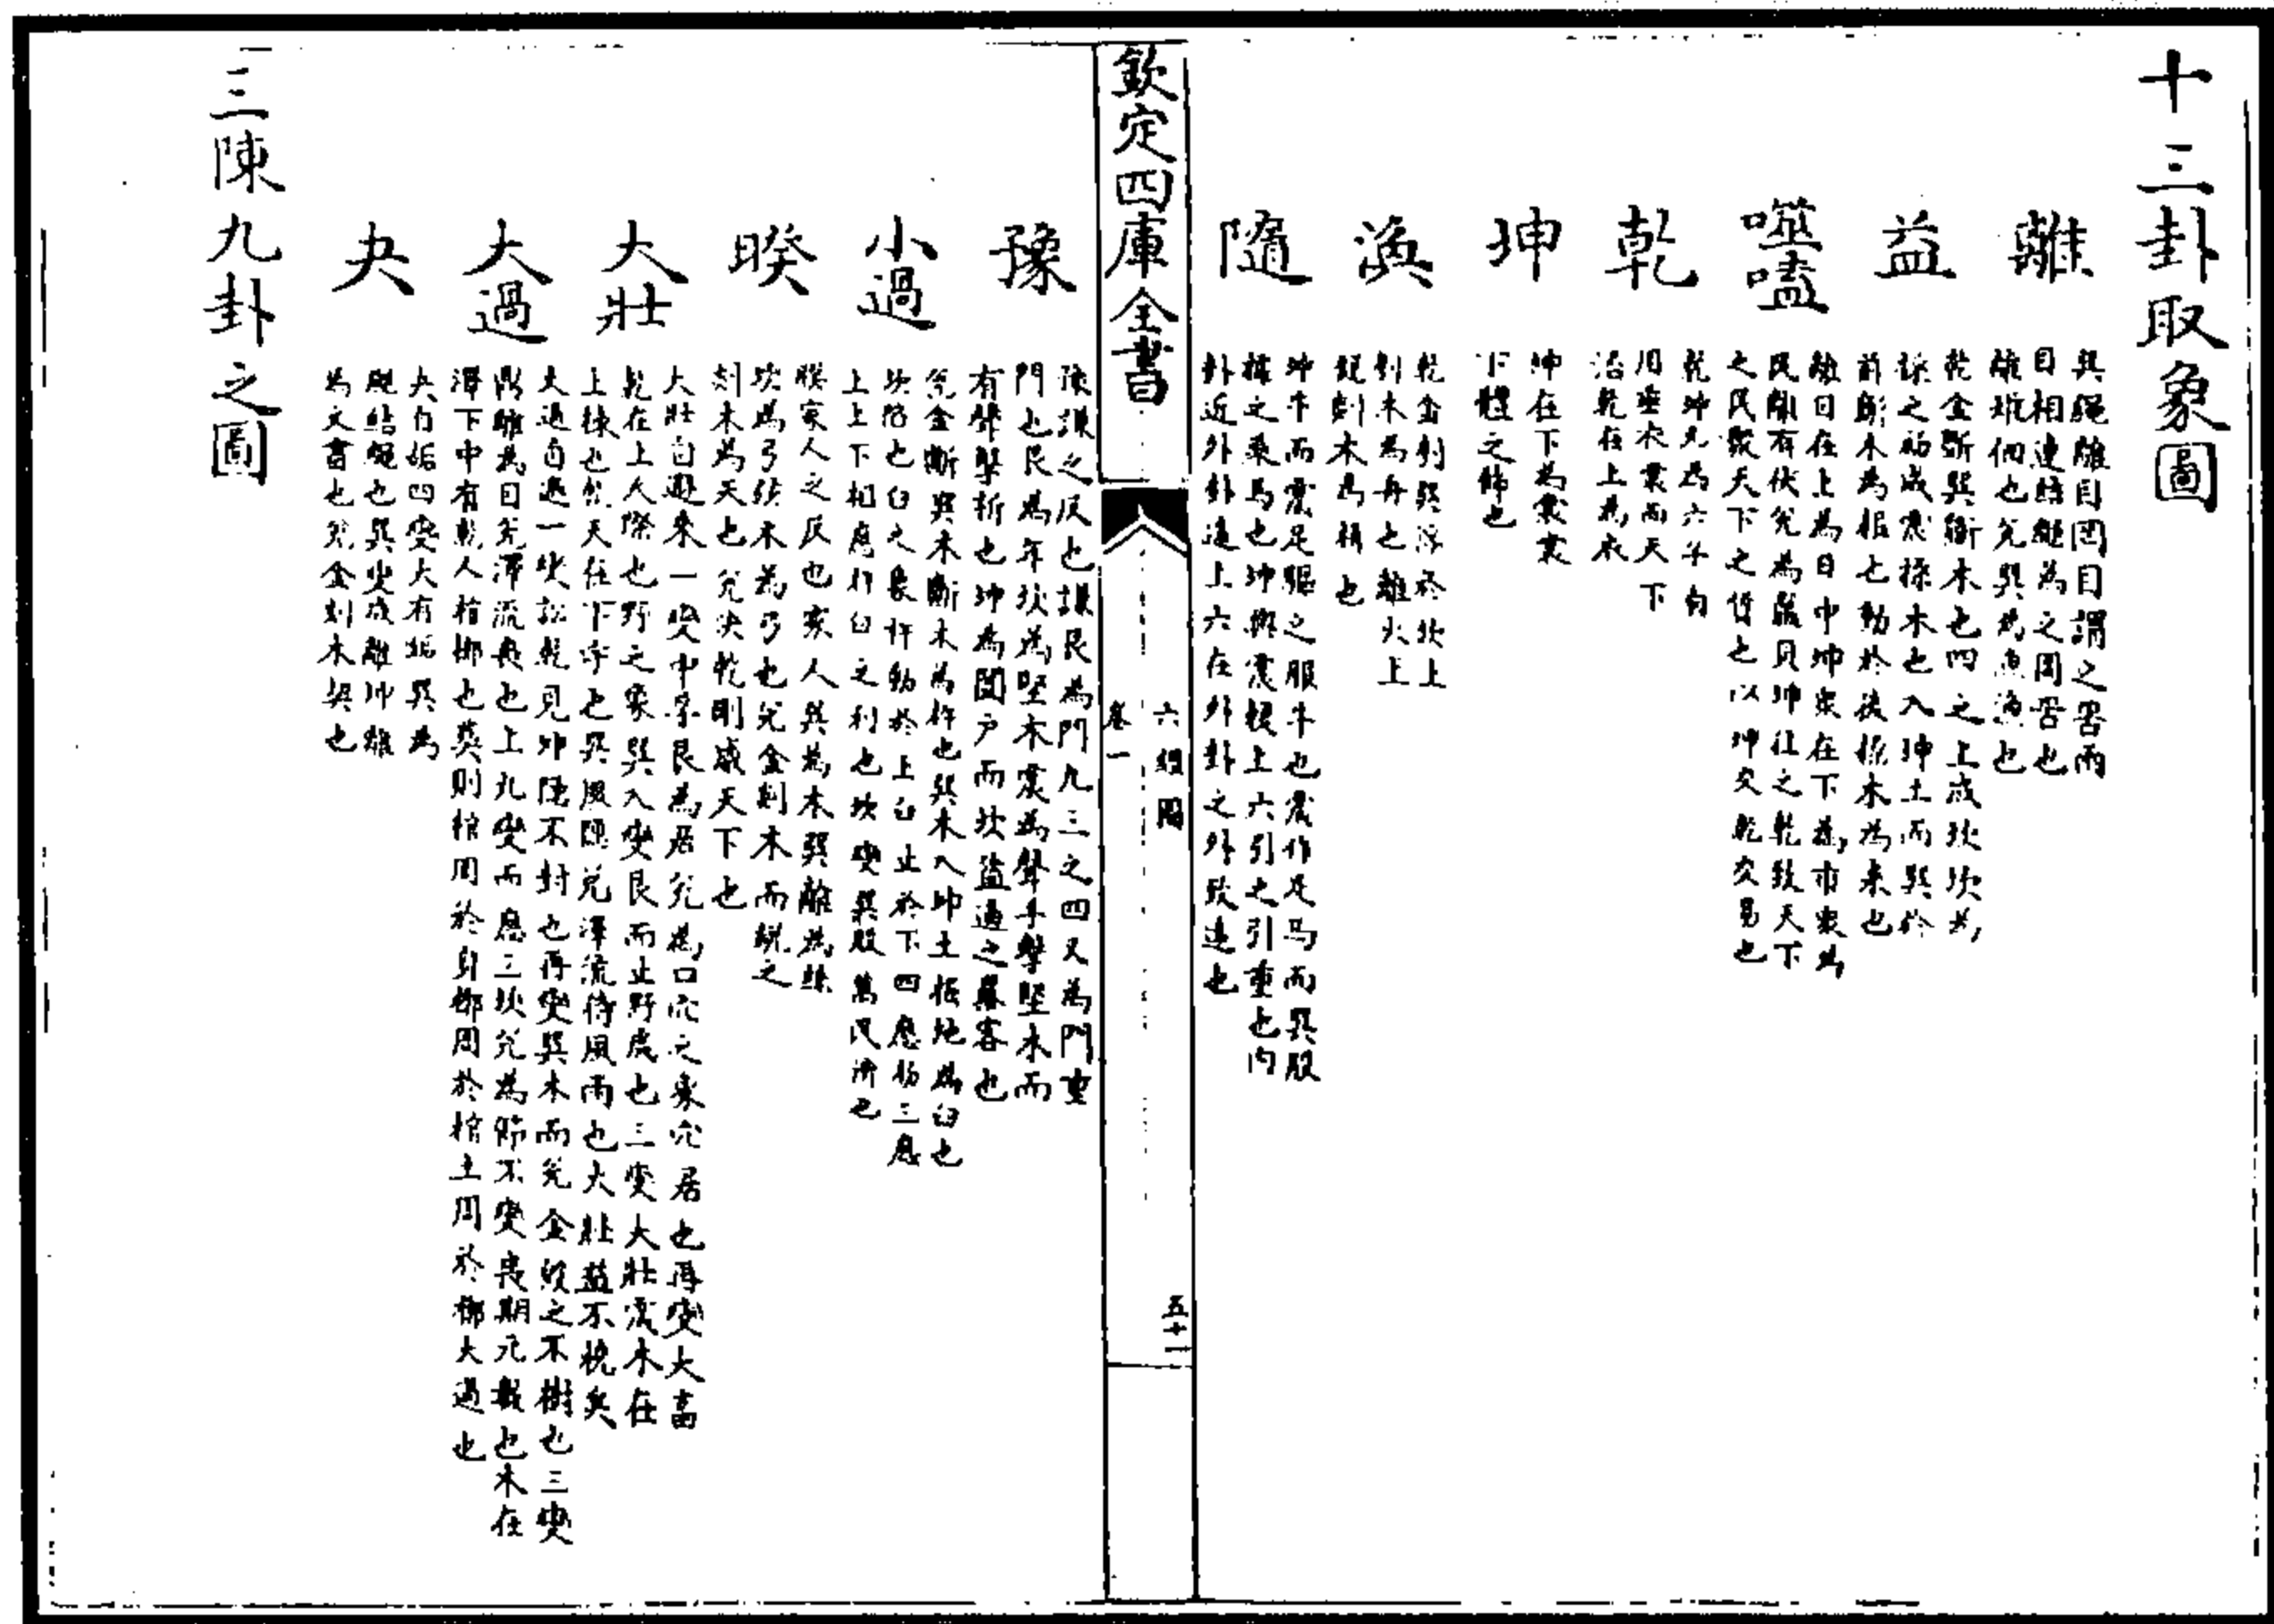 十三卦取象圖
離
巽繩離目罔目謂之罟兩
目相連結繩為之罔罟也
離雉佃也兌巽為魚漁也
益
乾金斲巽斲木也四之上成坎坎為
揉之而成震揉木也入坤土而巽於
前斲木為耜也動於後揉木為耒也
噬嗑
離日在上為日中坤衆在下為市衆為
民離有伏兌為蠃貝坤往之乾致天下
之民聚天下之貨也以坤交乾交易也
乾
乾坤尤為六子自
用垂衣裳而天下
治乾在上為衣
坤
坤在下為裳裳
下體之飾也
渙
乾金刳巽浮於坎上
刳木為舟也離火上
銳剡木為楫也
隨
坤牛而震足驅之服牛也震作足馬而巽股
據之乘馬也坤輿震輹上六引之引重也内
卦近外卦遠上六在外卦之外致遠也
欽定四庫全書
六經圖
卷一
五十一
豫
豫謙之反也謙艮為門九三之四又為門重
門也艮為手坎為堅木震為聲手擊堅木而
有聲擊柝也坤為闔戶而坎盜過之暴客也
小過
兌金斷巽木斷木為杵也巽木入坤土掘地為臼也
坎陷也臼之象杵動於上臼止於下四應初三應
上上下相應杵臼之利也坎變巽股萬民濟也
睽
睽家人之反也家人巽為木巽離為絲
坎為弓弦木為弧也兌金剡木而銳之
剡木為矢也兌決乾剛威天下也
大壯
大壯自遯來一變中孚艮為居兌為口穴之象穴居也再變大畜
乾在上人際也野之象巽入變艮而止野處也三變大壯震木在
上棟也乾天在下宇也巽風隱兌澤流待風雨也大壯蓋不撓矣
大過
大過自遯一變訟乾見坤隱不封也再變巽木而兌金毀之不樹也三變
鼎離為目兌澤流喪也上九變而應三坎兌為節不變喪期无數也木在
澤下中有乾人棺槨也葬則棺周於身槨周於棺土周於槨大過也
夬
夬自姤四變大有姤巽為
繩結繩也巽變成離坤離
為文書也兌金刻木契也
三陳九卦之圖